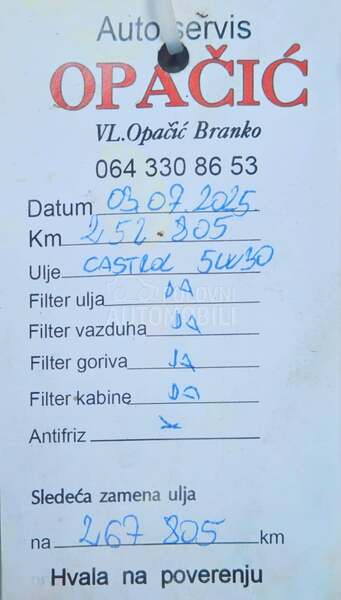 Auto servis
OPAČIĆ
VL.Opačić Branko
064 330 86 53
Datum 03.07.2025
Km 252.805
Ulje CASTROL 5W30
Filter ulja DA
Filter vazduha DA
Filter goriva DA
Filter kabine DA
Antifriz
POLOVNI
AUTOMOBILI
Sledeća zamena ulja
na 267 805 km
Hvala na poverenju